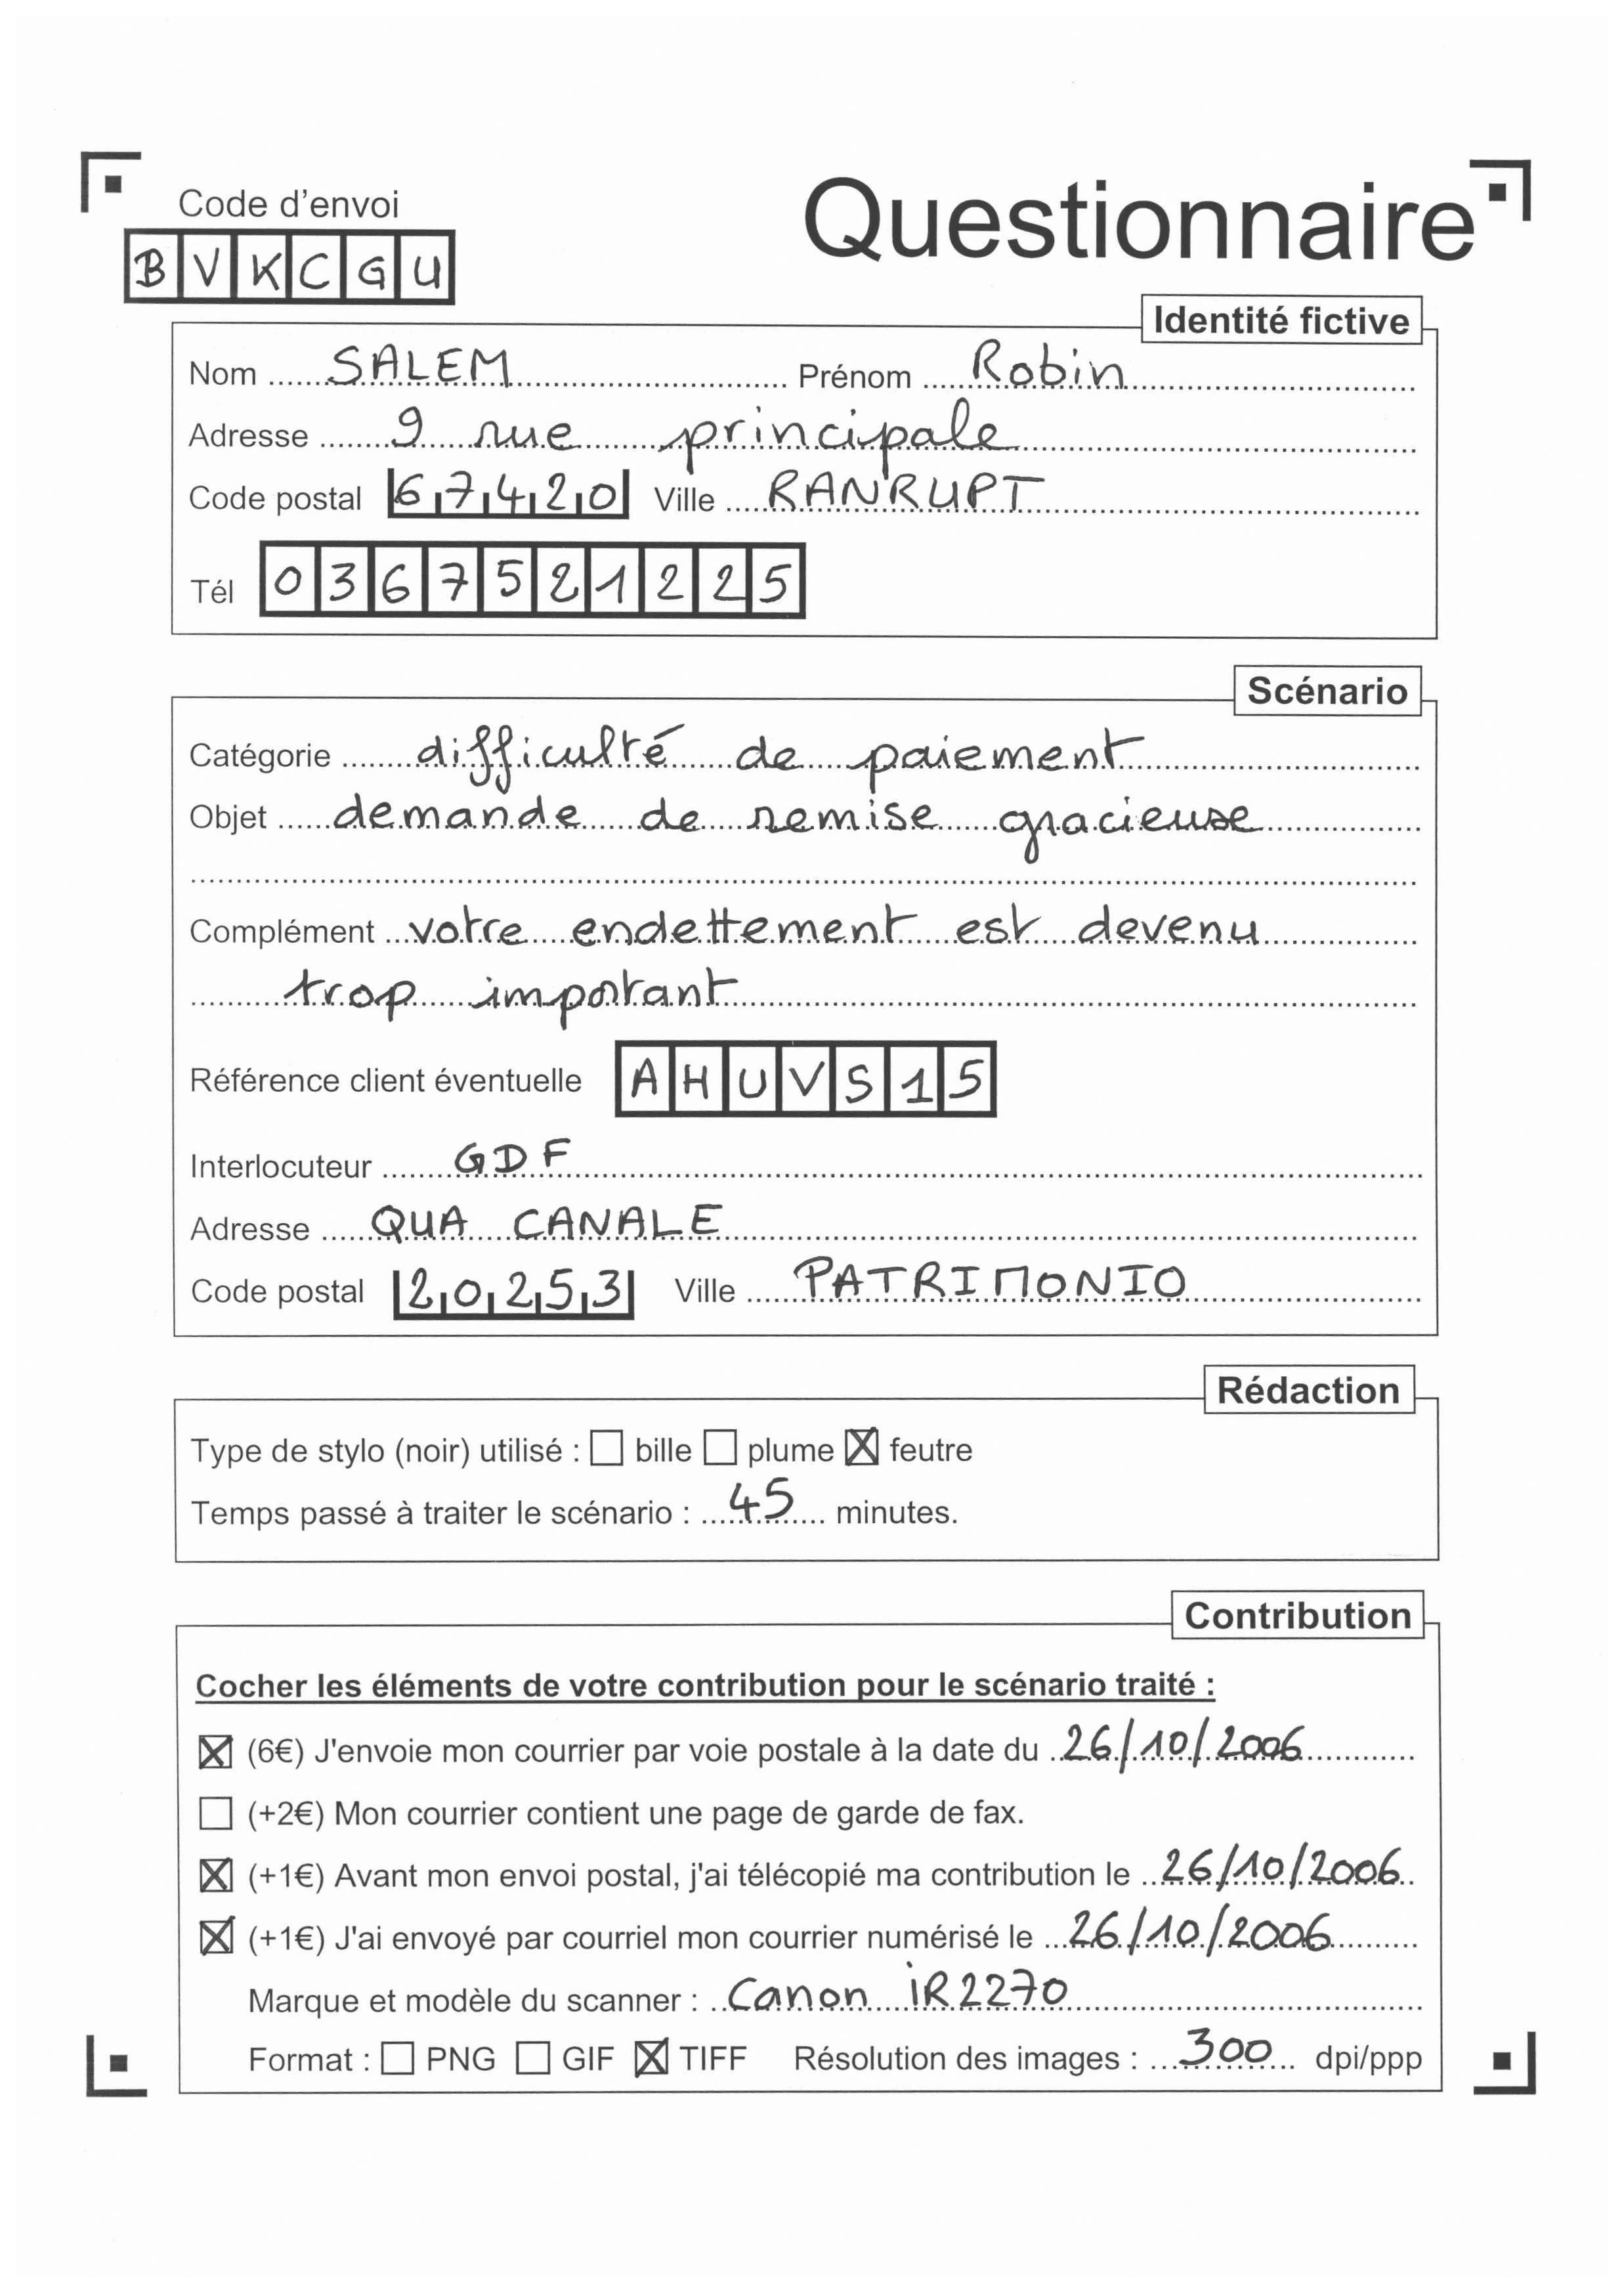 Code d'envoi
Questionnaire
BVKCGU
Identité fictive
Nom SALEM Prénom Robin
Adresse 9 rue principale
Code postal 67420 Ville RANRUPT
Tél 0367521225
Scénario
Catégorie difficulté de paiement
Objet demande de remise gracieuse
Complément votre endettement est devenu
trop important
Référence client éventuelle AHUVS15
Interlocuteur GDF
Adresse QUA CANALE
Code postal 20253 Ville PATRIMONIO
Rédaction
Type de stylo (noir) utilisé : ☐ bille ☐ plume ☒ feutre
Temps passé à traiter le scénario : 45 minutes.
Contribution
Cocher les éléments de votre contribution pour le scénario traité :
☒ (6€) J'envoie mon courrier par voie postale à la date du 26/10/2006
☐ (+2€) Mon courrier contient une page de garde de fax.
☒ (+1€) Avant mon envoi postal, j'ai télécopié ma contribution le 26/10/2006
☒ (+1€) J'ai envoyé par courriel mon courrier numérisé le 26/10/2006
Marque et modèle du scanner : Canon iR2270
Format : ☐ PNG ☐ GIF ☒ TIFF Résolution des images : 300 dpi/ppp